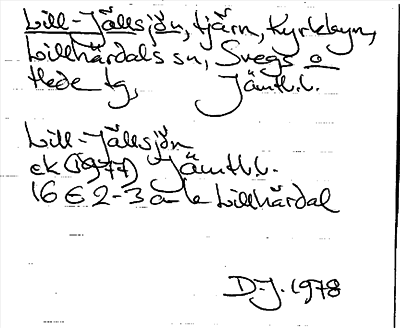 Lill-Jällsjön, tjärn, Kyrkbyn,
Lillhärdals sn, Svegs o
Hede tg, Jämtl.l.
Lill-Jällsjön
ek (1977) Jämtl.l.
16 E 2-3 a-b Lillhärdal
D-J. 1978